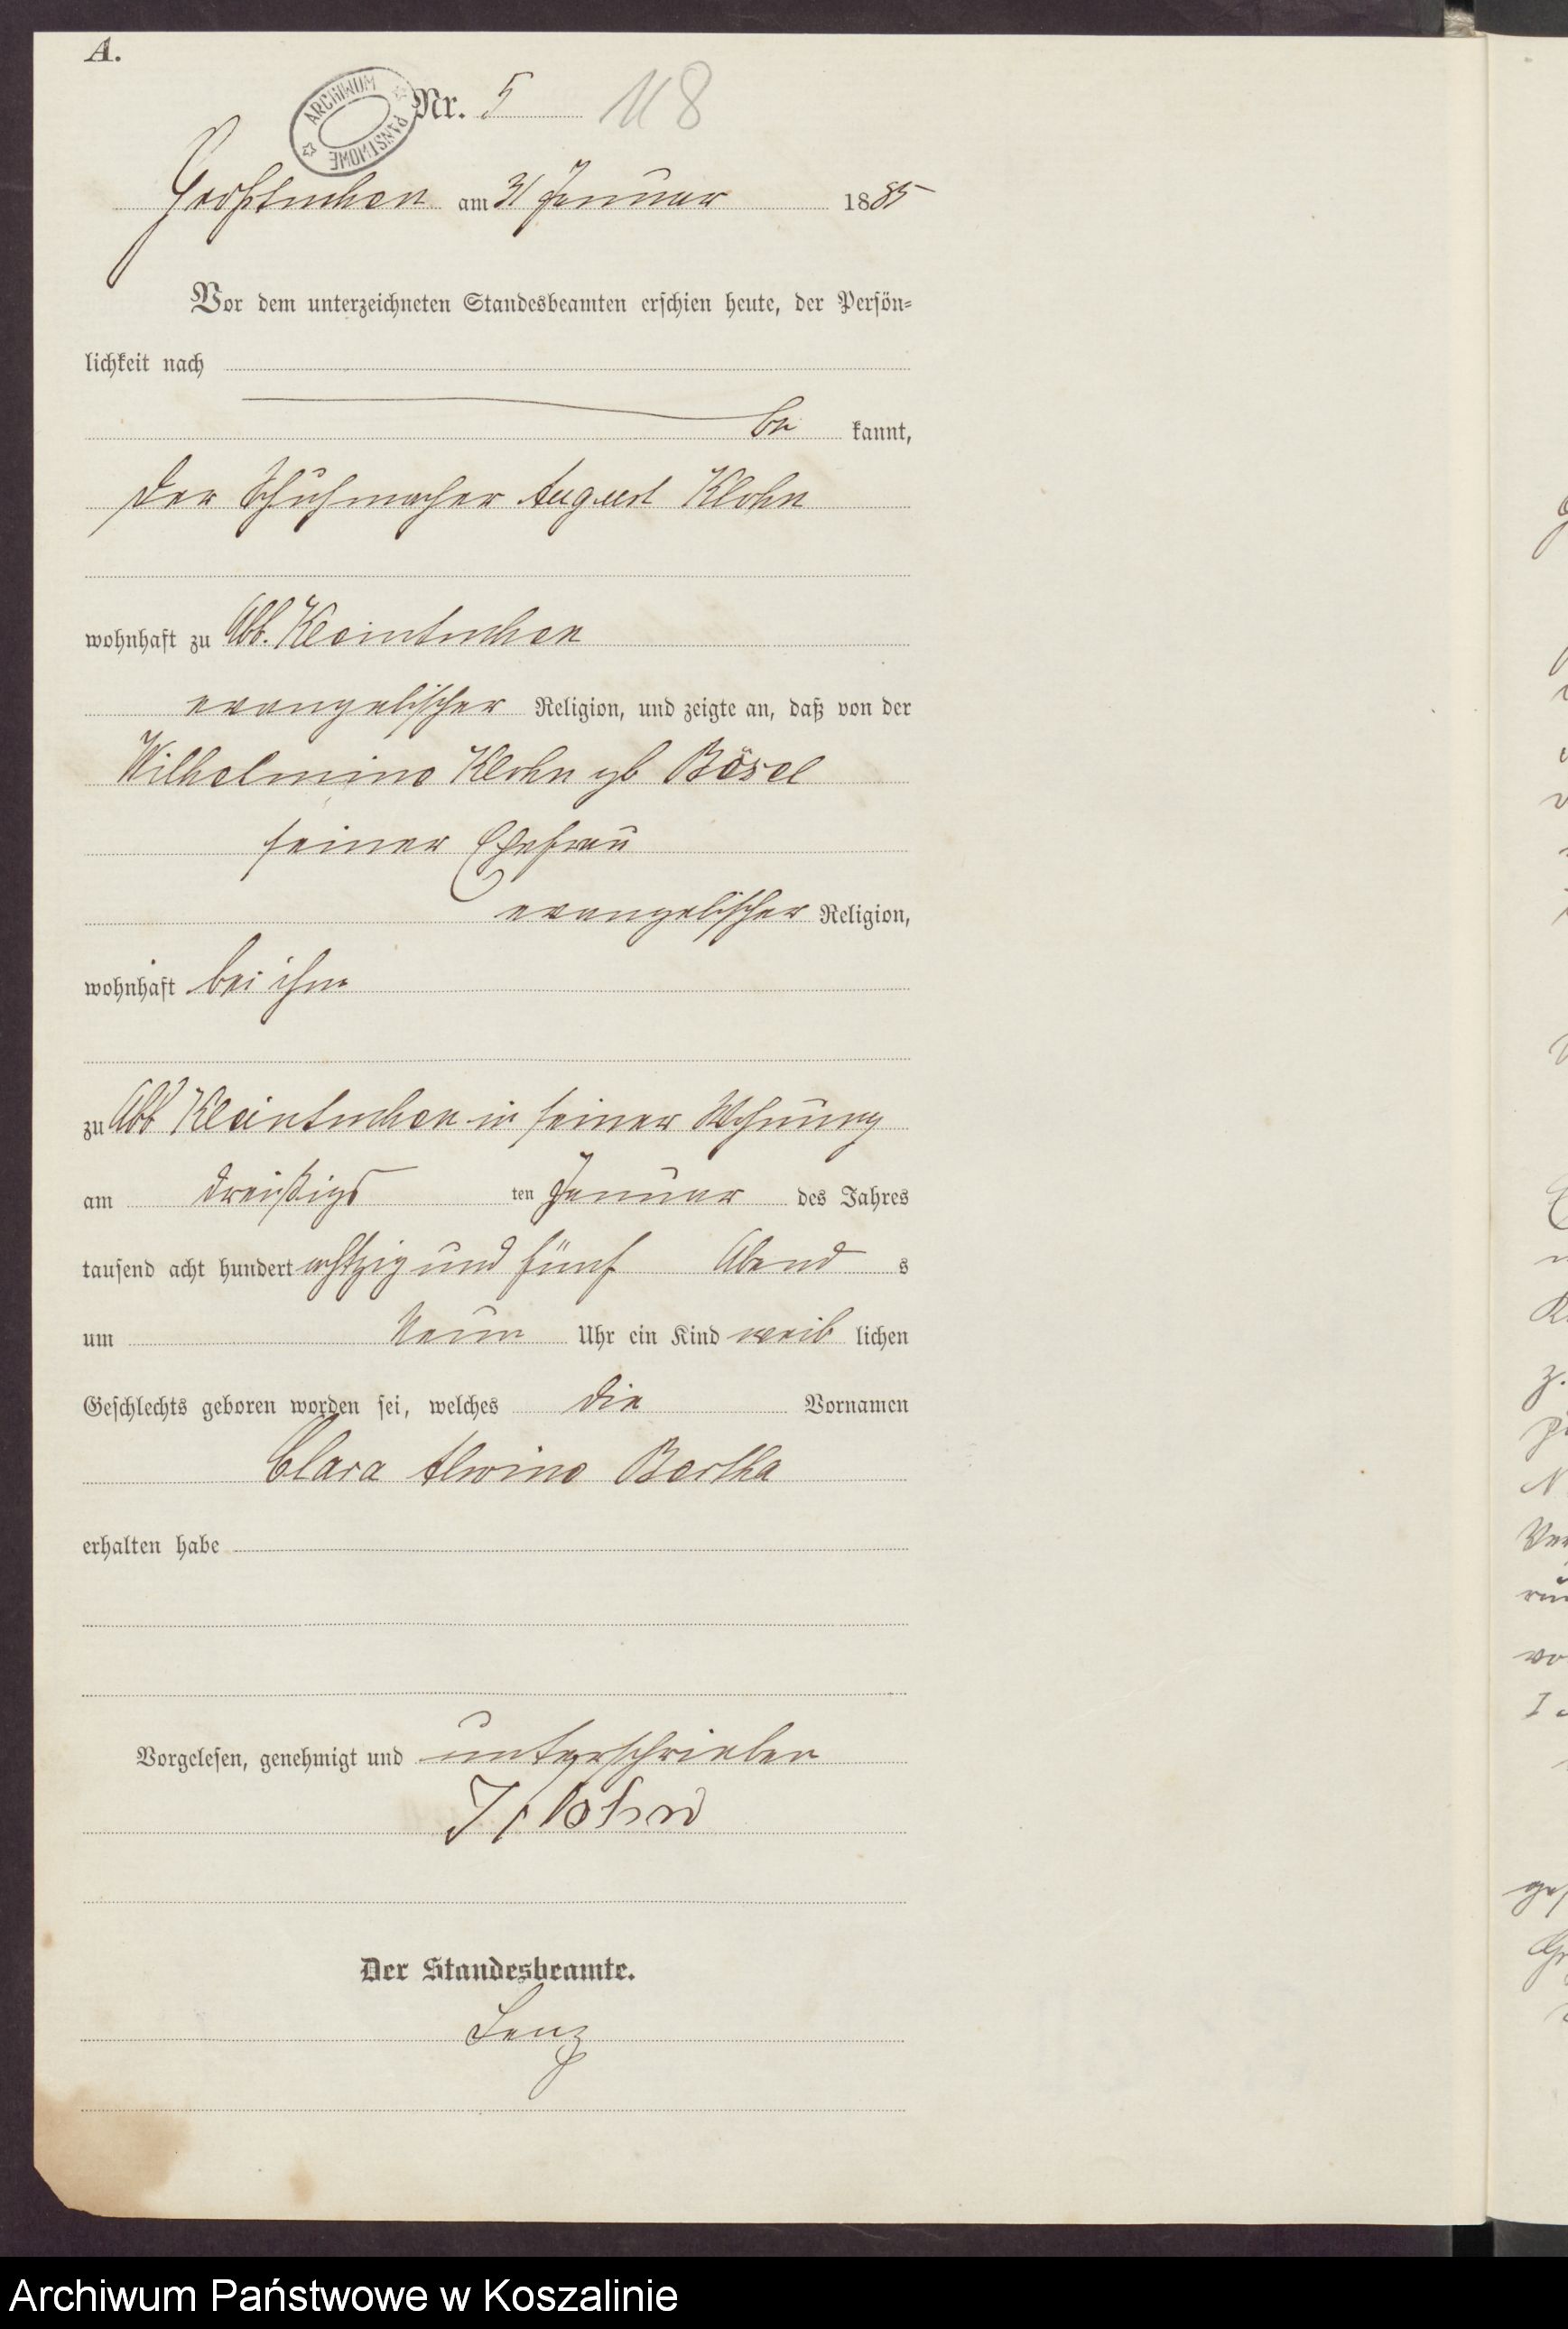 A.
ARCHIWUM PAŃSTWOWE
Nr. 5 118
Großtuchen am 31 Januar 1885
Vor dem unterzeichneten Standesbeamten erschien heute, der Persön=
lichkeit nach
be kannt,
der Schuhmacher August Klohn
wohnhaft zu Abb. Kleintuchen
evangelischer Religion, und zeigte an, daß von der
Wilhelmine Klohn gb Bösel
seiner Ehefrau
evangelischer Religion,
wohnhaft bei ihm
zu Abb Kleintuchen in seiner Wohnung
am dreißigs ten Januar des Jahres
tausend acht hundert achtzig und fünf Abend s
um Neun Uhr ein Kind weib lichen
Geschlechts geboren worden sei, welches die Vornamen
Clara Alwine Bertha
erhalten habe
Vorgelesen, genehmigt und unterschrieben
Der Standesbeamte.
Lenz
Archiwum Państwowe w Koszalinie